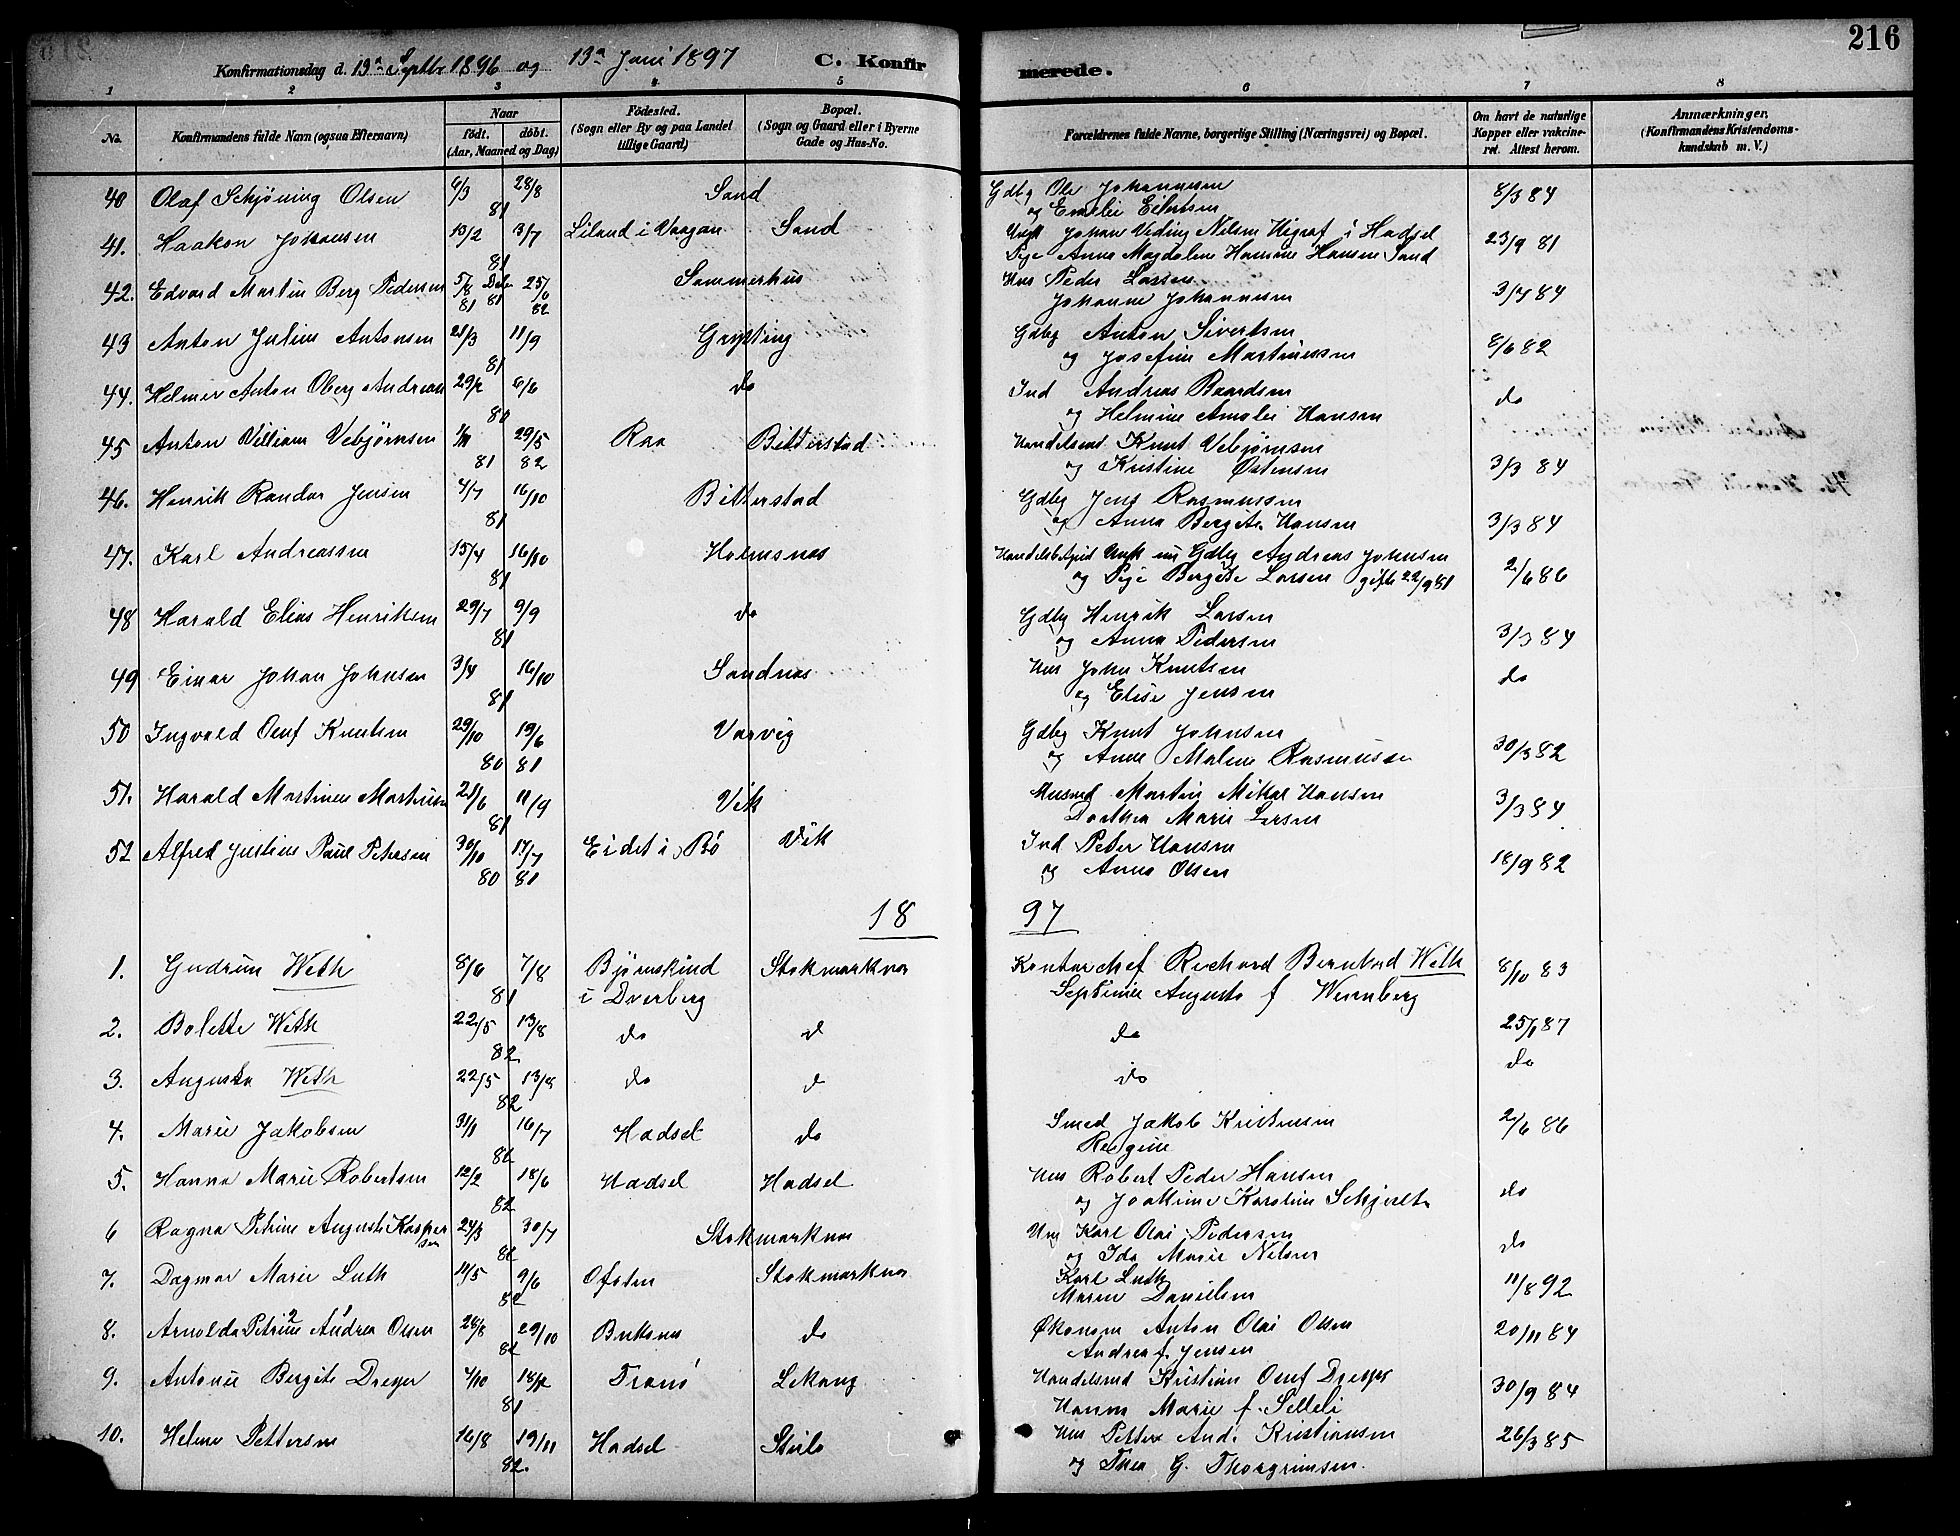 216
Konfirmationsdag d. 13de Septbr 1896 og 13de Juni 1897 C. Konfirmerede.
1 2 3 4 5 6 7 8
No. Konfirmandens fulde Navn (ogsaa Efternavn) Naar født. døbt. (Aar, Maaned og Dag) Födested. (Sogn eller By og paa Landet tillige Gaard) Bopæl. (Sogn og Gaard eller i Byerne Gade og Hus-No. Forældrenes fulde Navne, borgerlige Stilling (Næringsvei) og Bopæl. Om havt de naturlige Kopper eller vakcineret. Attest herom. Anmærkninger. (Konfirmandens Kristendomskundskab m. V.)
40 Olaf Schjöning Olsen 6/3 28/8 81 Sand Gdbg Ole Johannesen og Emelie Eilertsen 8/3 84
41. Haakon Johansen 13/2 3/7 81 Liland i Vaagan Sand Ungk Johan Nilsen i Hadsel Pige Anna Magdalene Hansen Sand 23/9 81
42. Edvard Martin Berg Pedersen 5/8 81 82 Sommerhus Hus Peder Larsen Johanne Johannesen 3/7 84
43 Anton Julius Antonsen 21/3 11/9 81 Grytting Gdbg Anton Sivertsen og Josefine Martinussen 8/6 82
44. Helmer Anton Oberg Andreas 29/2 6/6 80 do Ind Andreas Baardsen og Helmine Amalie Hansen do
45 Anton William Vebjørnsen 1/11 81 29/5 82 Raa Bitterstad Handelsmd Knut Vebjørnsen og Kristine Østensen 3/3 84
46. Henrik Randor Jensen 4/7 16/10 81 Bitterstad Gdbg Jens Rasmussen og Anna Bergete Hansen 3/3 84
47. Karl Andreassen 15/4 16/10 81 Holmsnes Handelsbetjent Ungk nu Gdbg Andreas Johnsen og Pige Bergete Larsen gift 22/9 81 2/6 86
48 Harald Elias Henriksen 29/7 9/9 81 do Gdbg Henrik Larsen og Anna Pedersen 3/3 84
49 Einar Johan Johnsen 3/4 16/10 81 Sandnes Hus John Knutsen og Elise Jensen do
50 Ingvald Oluf Knutsen 29/10 80 19/6 81 Varvig Gdbg Knut Johnsen og Anne Malene Rasmussen 30/3 82
51. Harald Martinus Martinsen 21/6 11/9 81 Vik Husmd Martin Mikal Hansen Dorthea Marie Larsen 3/3 84
52 Alfred Justin Paul Petersen 30/10 80 17/7 81 Eidet i Bö Vik Ind Peter Hansen og Anna Olsen 18/9 82
1897
1. Gudrun Weth 8/6 7/8 81 Bjørnskind i Dverberg Stokmarknes Kontorchef Richard Bernhard Weth Septimie Augusta f Wennberg 8/10 83
2. Bolette Weth 22/5 13/8 82 do d do 25/1 87
3. Augusta Weth 22/5 13/8 82 do d do do
4. Marie Jakobsen 31/1 16/7 82 Hadsel do Smed Jakob Kristensen Regine 2/6 86
5. Hanna Marie Robertsen 12/2 18/6 82 Hadsel Hadsel Hus Robert Peder Hansen og Joakime Karoline Schjerlt do
6 Ragna Petrine Augusta Kaspersen 24/3 30/7 82 Stokmarknes Hus Karl Olai Pedersen og Ida Marie Nelsen do
7. Dagmar Marie Luth 11/5 9/6 82 Ofoten Stokmarknes Karl Luth Maren Danielsen 11/8 92
8. Arnolda Petrine Andrea Olsen 28/8 29/10 82 Buksnes do Økonom Anton Olai Olsen Andrea f. Jensen 20/11 84
9. Antonie Bergete Dreyer 4/10 18/12 81 Tranö Lekang Handelsmd Kristian Oluf Dreyer Hanna Marie f. Selleli 30/9 84
10. Helene Pettersen 16/8 19/11 82. Hadsel Steilo Hus Petter And. Kristiansen og Thea G. Thorgrimsen. 26/3 85